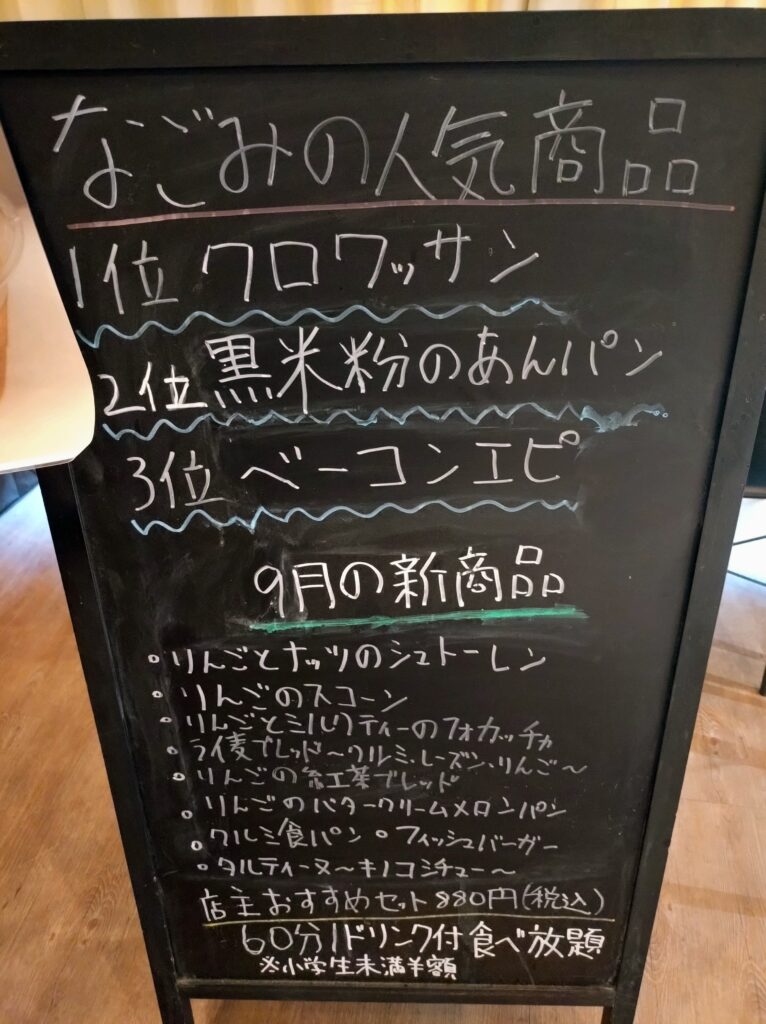 なごみの人気商品
1位 クロワッサン
2位 黒米粉のあんパン
3位 ベーコンエピ
9月の新商品
◦りんごとナッツのシュトーレン
◦りんごのスコーン
◦りんごとミルクティーのフォカッチャ
◦ライ麦ブレッド〜クルミ・レーズン・りんご〜
◦りんごの紅茶ブレッド
◦りんごのバタークリームメロンパン
◦クルミ食パン ◦フィッシュバーガー
◦タルティーヌ〜キノコシチュー〜
店主おすすめセット880円(税込)
60分1ドリンク付食べ放題
※小学生未満半額